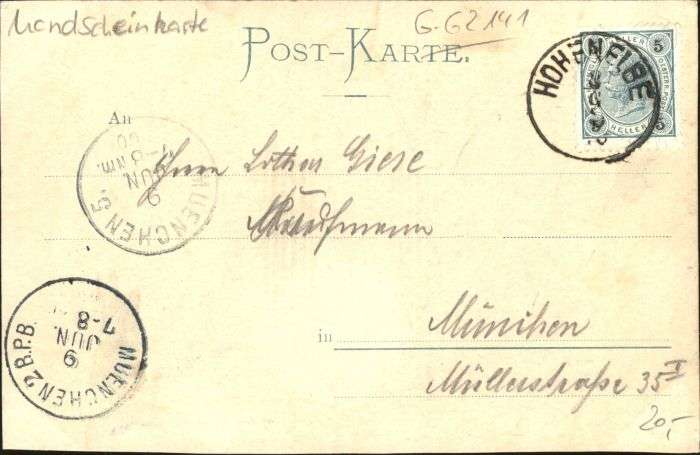 Mondscheinkarte
G.GZ141
POST-KARTE.
5
5
HELLER
HOHENELBE
An
MUENCHEN 5.
9 JUN.
7-8 NM.
00
Herrn Lothar Giese
Kaufmann
in München
Müllerstraße 35 I
MUENCHEN 2 B.P.B.
9
JUN.
7-8
20,-